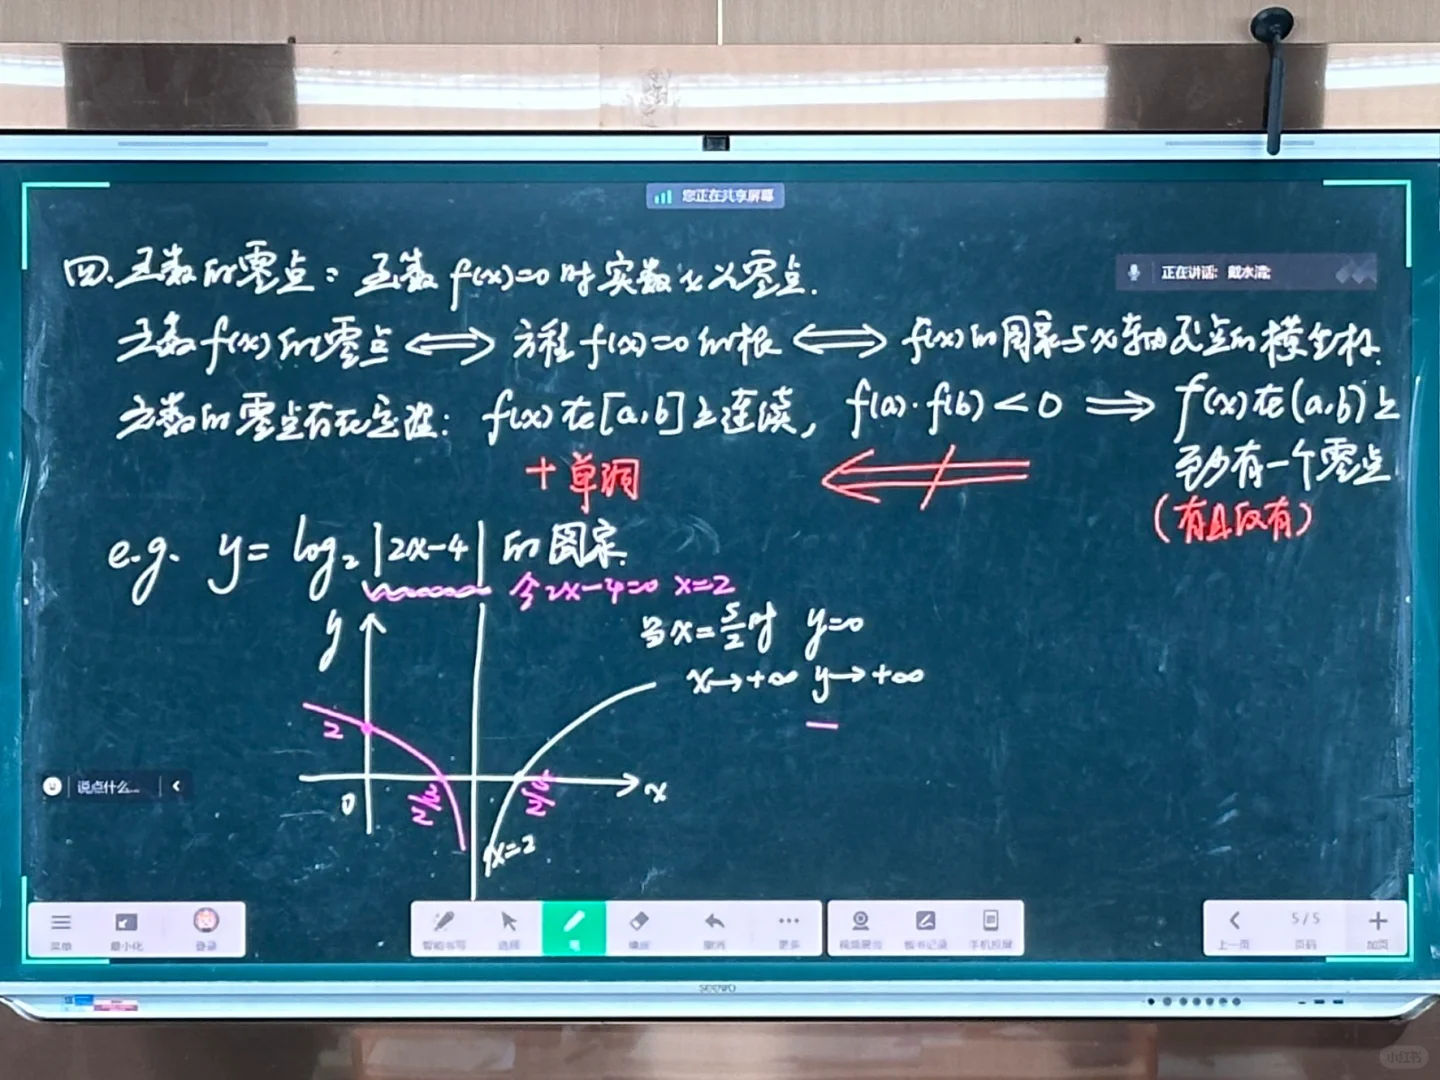 您正在共享屏幕
四.函数的零点：函数 f(x)=0 时实数 x 为零点.
正在讲话: 戴水清;
函数 f(x) 的零点 ⟺ 方程 f(x)=0 的根 ⟺ f(x)的图象与x轴交点的横坐标.
函数的零点存在定理: f(x)在[a,b]上连续, f(a)·f(b)<0 ⟹ f(x)在(a,b)上
至少有一个零点
+单调
(有且仅有)
e.g. y= log₂|2x-4| 的图象.
令2x-4=0 x=2
当x=5/2时 y=0
x→+∞ y→+∞
y
2
0
3/2
5/2
x
x=2
说点什么...
菜单
最小化
登录
智能书写
选择
笔
橡皮
撤消
更多
视频展台
板书记录
手机投屏
上一页
5/5
页码
加页
seewo
小红书